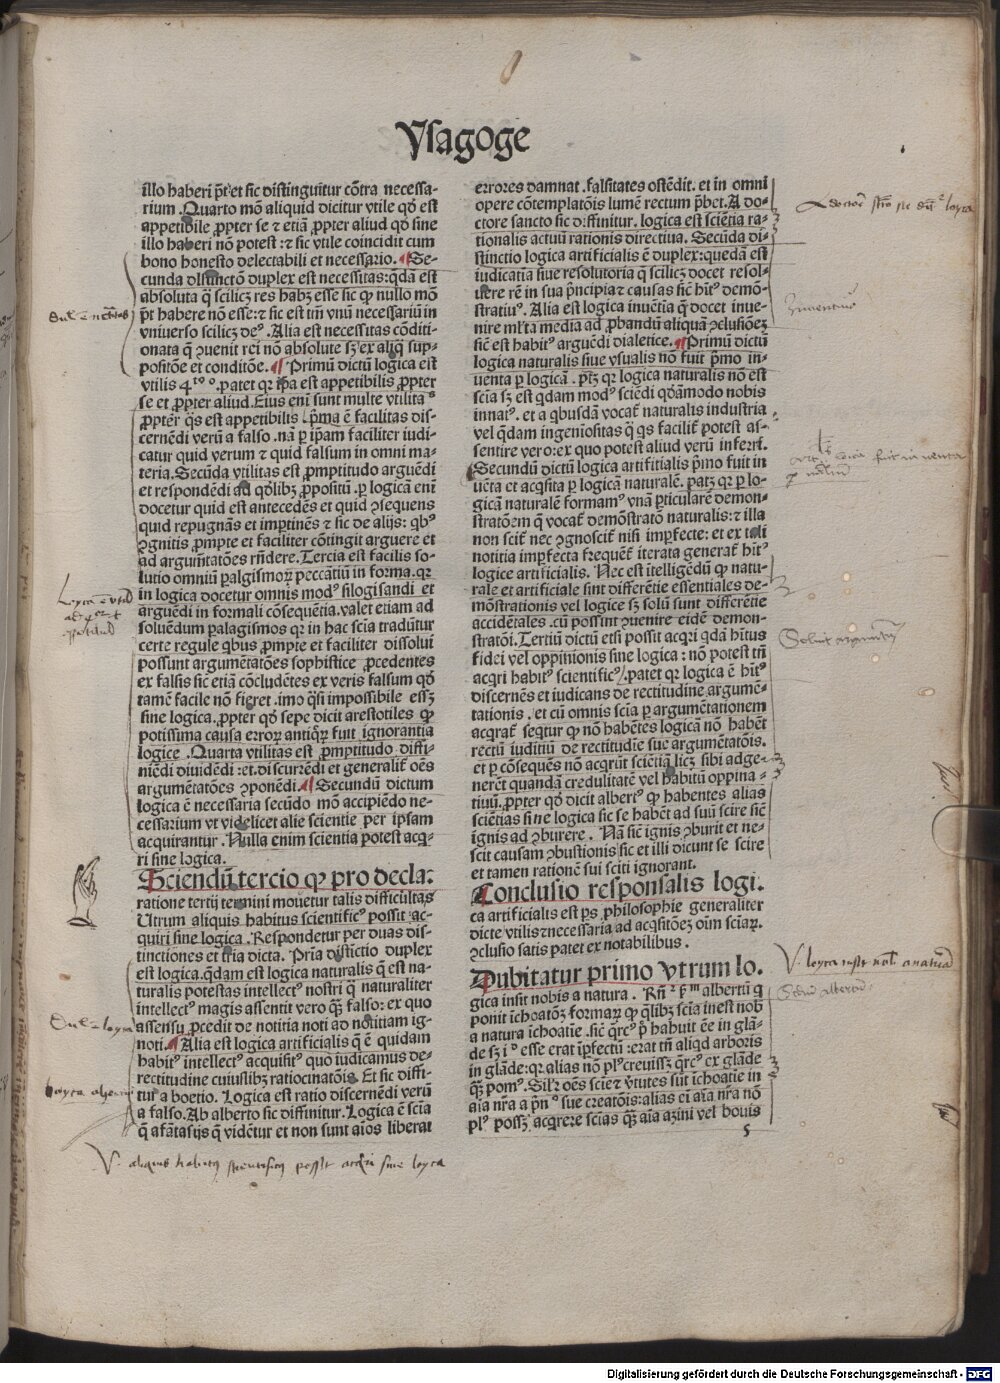 Ysagoge
illo haberi pōt et sic distinguitur cōtra necessa-
rium. Quarto mō aliquid dicitur vtile qd̄ est
appetibile ꝓpter se ⁊ etiā ꝓpter aliud qd̄ sine
illo haberi nō potest: ⁊ sic vtile coincidit cum
bono honesto delectabili et necessario. ¶ Se-
cunda distinctō duplex est necessitas: qdā est
absoluta q̄ scilicꝫ res habꝫ esse sic ꝙ nullo mō
pōt habere nō esse: ⁊ sic est tm̄ vnū necessariū in
vniuerso scilicꝫ deꝰ. Alia est necessitas cōditi-
onata q̄ ꝯuenit rei nō absolute sꝫ ex aliq̄ sup-
positōe et conditōe. ¶ Primū dictū logica est
vtilis 4ᵗᵒ. patet qꝛ ip̄a est appetibilis ꝓpter
se et ꝓpter aliud. Eius eni sunt multe vtilitaᵗˢ
ꝓpter q̄s est appetibilis. pͥma ē facilitas dis-
cernēdi verū a falso. nā ꝑ ip̄am faciliter iudi-
catur quid verum ⁊ quid falsum in omni ma-
teria. Secūda vtilitas est ꝓmptitudo arguēdi
et respondēdi ad qd̄libꝫ ꝓpositū. ꝑ logicā enī
docetur quid est antecedēs et quid ꝯsequens
quid repugnās et imptinēs ⁊ sic de alijs: qbꝰ
ꝯgnitis ꝓmpte et faciliter cōtingit arguere et
ad argumētatōes rn̄dere. Tercia est facilis so-
lutio omniū ꝑalgismoꝝ peccātiū in forma. qꝛ
in logica docetur omnis modꝰ silogisandi et
arguēdi in formali cōsequētia. valet etiam ad
soluēdum ꝑalagismos qꝛ in hac scīa tradūtur
certe regule qbus ꝓmpte et faciliter dissolui
possunt argumētatōes sophistice ꝓcedentes
ex falsis sic̄ etiā cōcludētes ex veris falsum qd̄
tamē facile nō fieret. imo q̄si impossibile essꝫ
sine logica. ꝓpter qd̄ sepe dicit arestotiles ꝙ
potissima causa erroꝝ antiqꝝ fuit ignorantia
logice. Quarta vtilitas est ꝓmptitudo diffi-
niēdi diuidēdi: et discurrēdi et generalit̄ oēs
argumētatōes ꝯponēdi. ¶ Secundū dictum
logica ē necessaria secūdo mō accipiēdo ne-
cessarium vt videlicet alie scientie per ipsam
acquirantur. Nulla enim scientia potest acq̄-
ri sine logica.
Sciendū tercio ꝙ pro decla-
ratione tertij termini mouetur talis difficultas
Utrum aliquis habitus scientificꝰ possit ac-
quiri sine logica. Respondetur per duas dis-
tinctiones et tria dicta. Pria distīctio duplex
est logica. qdam est logica naturalis q̄ est na-
turalis potestas intellectꝰ nostri q̄ naturaliter
intellectꝰ magis assentit vero qꝫ falso: ex quo
assensu ꝓcedit de notitia noti ad notitiam ig-
noti. ¶ Alia est logica artificialis q̄ ē quidam
habitꝰ intellectꝰ acquisitꝰ quo iudicamus de
rectitudine cuiuslibꝫ ratiocinatōis. Et sic diffi-
turꝰ a boetio. Logica est ratio discernēdi verū
a falso. Ab alberto sic diffinitur. Logica ē scīa
q̄ a fātasijs q̄ vidētur et non sunt aīos liberat
errores damnat. falsitates ostēdit. et in omni
opere cōtemplatōis lumē rectum p̄bet. A do-
ctore sancto sic diffinitur. logica est sciētia ra-
tionalis actuū rationis directiua. Secūda di-
stinctio logica artificialis ē duplex: quedā est
iudicatīa siue resolutoria q̄ scilicꝫ docet resol-
uere rē in sua p̄ncipia ⁊ causas sic̄ hītꝰ demō-
stratiuꝰ. Alia est logica inuētia q̄ docet inue-
nire ml̄ta media ad ꝓbandū aliquā ꝯclusiōeꝫ
sic̄ est habitꝰ arguēdi dialetice. ¶ Primū dictū
logica naturalis siue vsualis nō fuit pͥmo in-
uenta ꝑ logicā. ptꝫ qꝛ logica naturalis nō est
scīa sꝫ est qdam modꝰ sciēdi qdāmodo nobis
innatꝰ. et a qbusdā vocat̄ naturalis industria
vel qdam ingeniositas q̄ qs facilit̄ potest as-
sentire vero: ex quo potest aliud verū inferri.
Secundū dictū logica artifitialis pͥmo fuit in
uēta et acqsita ꝑ logicā naturalē. patꝫ qꝛ ꝑ lo-
gicā naturalē formamꝰ vnā ꝑticularē demon-
stratōem q̄ vocat̄ demōstrato naturalis: ⁊ illa
non scit̄ nec ꝯgnoscit̄ nisi imꝑfecte: et ex tali
notitia imꝑfecta frequēt̄ iterata generat̄ hītꝰ
logice artificialis. Nec est itelligēdū ꝙ natu-
rale et artificiale sint differētie essentiales de-
mōstrationis vel logice sꝫ solū sunt differētie
accidētales. cū possint ꝯuenire eidē demon-
stratōi. Tertiū dictū etsi possit acqri qdā hītus
fidei vel oppinionis sine logica: nō potest tn̄
acqri habitꝰ scientificꝰ. patet qꝛ logica ē hītꝰ
discernēs et iudicans de rectitudine argumē-
tationis. et cū omnis scīa ꝑ argumētationem
acqrat̄ seqtur ꝙ nō habētes logicā nō habēt
rectū iuditiū de rectitudīe sue argumētatōis.
et ꝑ cōsequēs nō acqrūt sciētiā licꝫ sibi adge-
nerēt quandā credulitatē vel habitū oppina-
tiuū. ꝓpter qd̄ dicit albertꝰ ꝙ habentes alias
sciētias sine logica sic se habēt ad suū scire sic̄
ignis ad ꝯburere. Nā sic̄ ignis ꝯburit et ne-
scit causam ꝯbustionis sic et illi dicunt se scire
et tamen rationē sui sciti ignorant.
Conclusio responsalis logi-
ca artificialis est ps̄ philosophie generaliter
dicte vtilis ⁊ necessaria ad acqsitōeꝫ oīm sciaꝝ.
ꝯclusio satis patet ex notabilibus.
Dubitatur primo vtrum lo-
gica insit nobis a natura. Rn̄ᵗ pͥmᵐ albertū q
ponit ichoatōꝫ formaꝝ ꝙ qlibꝫ scīa inest nob̄
a natura īchoatīe. sic̄ qrcꝰ p̄habuit ēē in glā-
de sꝫ iᵈ esse erat īꝑfectū: erat tn̄ aliqd arboris
in glāde: qꝛ alias nō plꝰ creuissꝫ qrcꝰ ex glāde
qꝫ pomꝰ. Silꝝ oēs scie ⁊ v̄tutes sūt īchoatie in
aīa nr̄a a pn̄ᵒ sue creatōis: alias ei aīa nr̄a nō
plꝰ possꝫ acqrere scias qꝫ aīa asini vel bouis
5
V. aliquis habitus scientificus possit acqri sine loyca
Digitalisierung gefördert durch die Deutsche Forschungsgemeinschaft - DFG